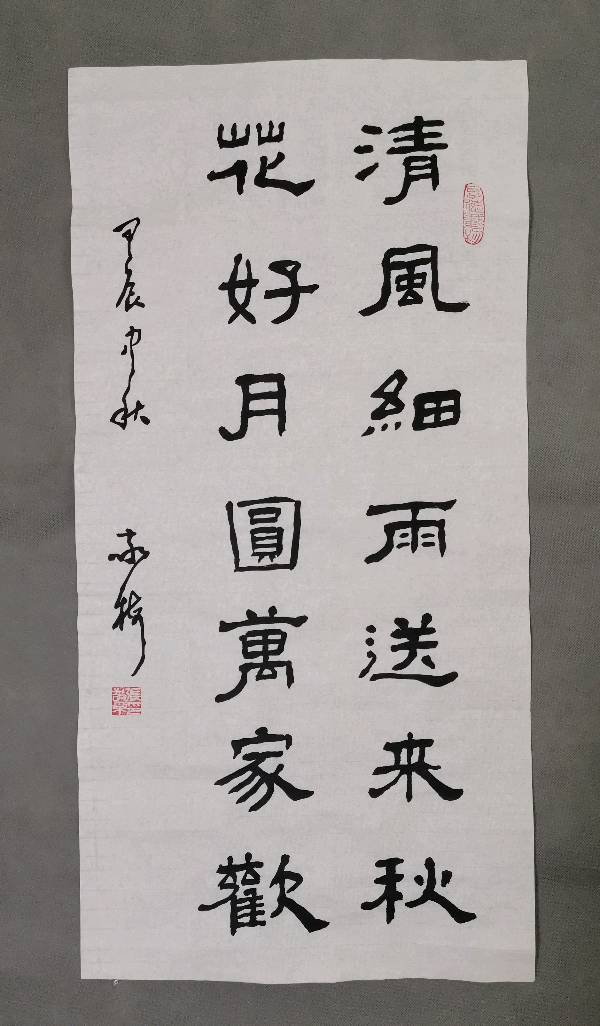 清風細雨送来秋
花好月圓萬家歡
甲辰中秋